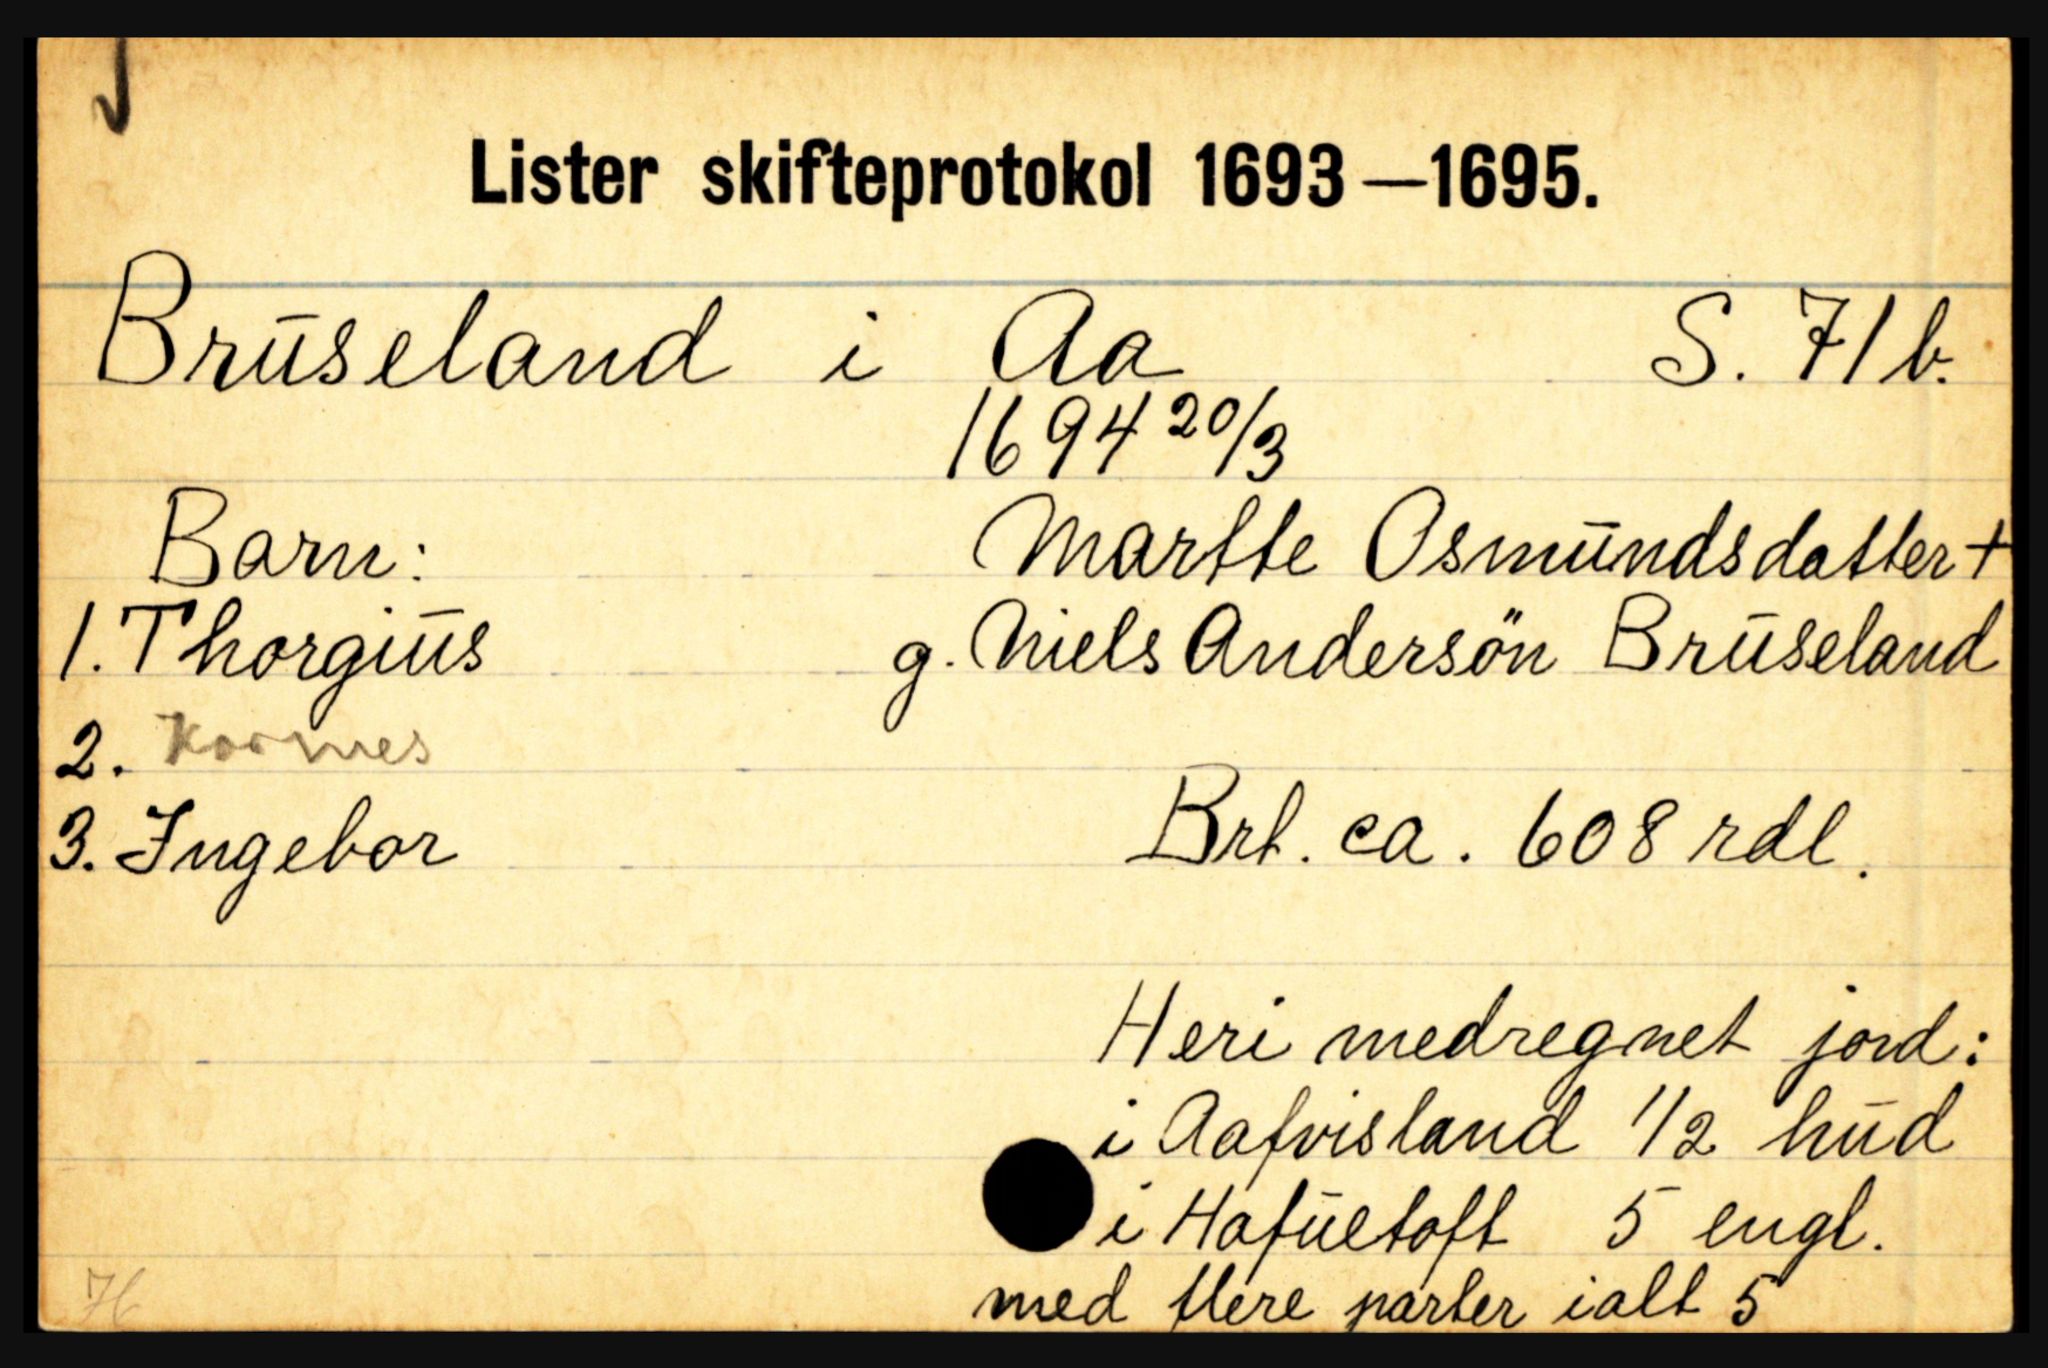 Lister skifteprotokol 1693—1695.
Brūseland i Aa S. 71b.
1694 20/3
Barn: Martte Osmūndsdatter +
1. Thorgiūs g. Niels Andersön Brūseland
2. Kormes
3. Ingebor Brt. ca. 608 rdl.
Heri medregnet jord:
i Aafvisland 1/2 hūd
i Hafūetoft 5 engl.
med flere parter ialt 5